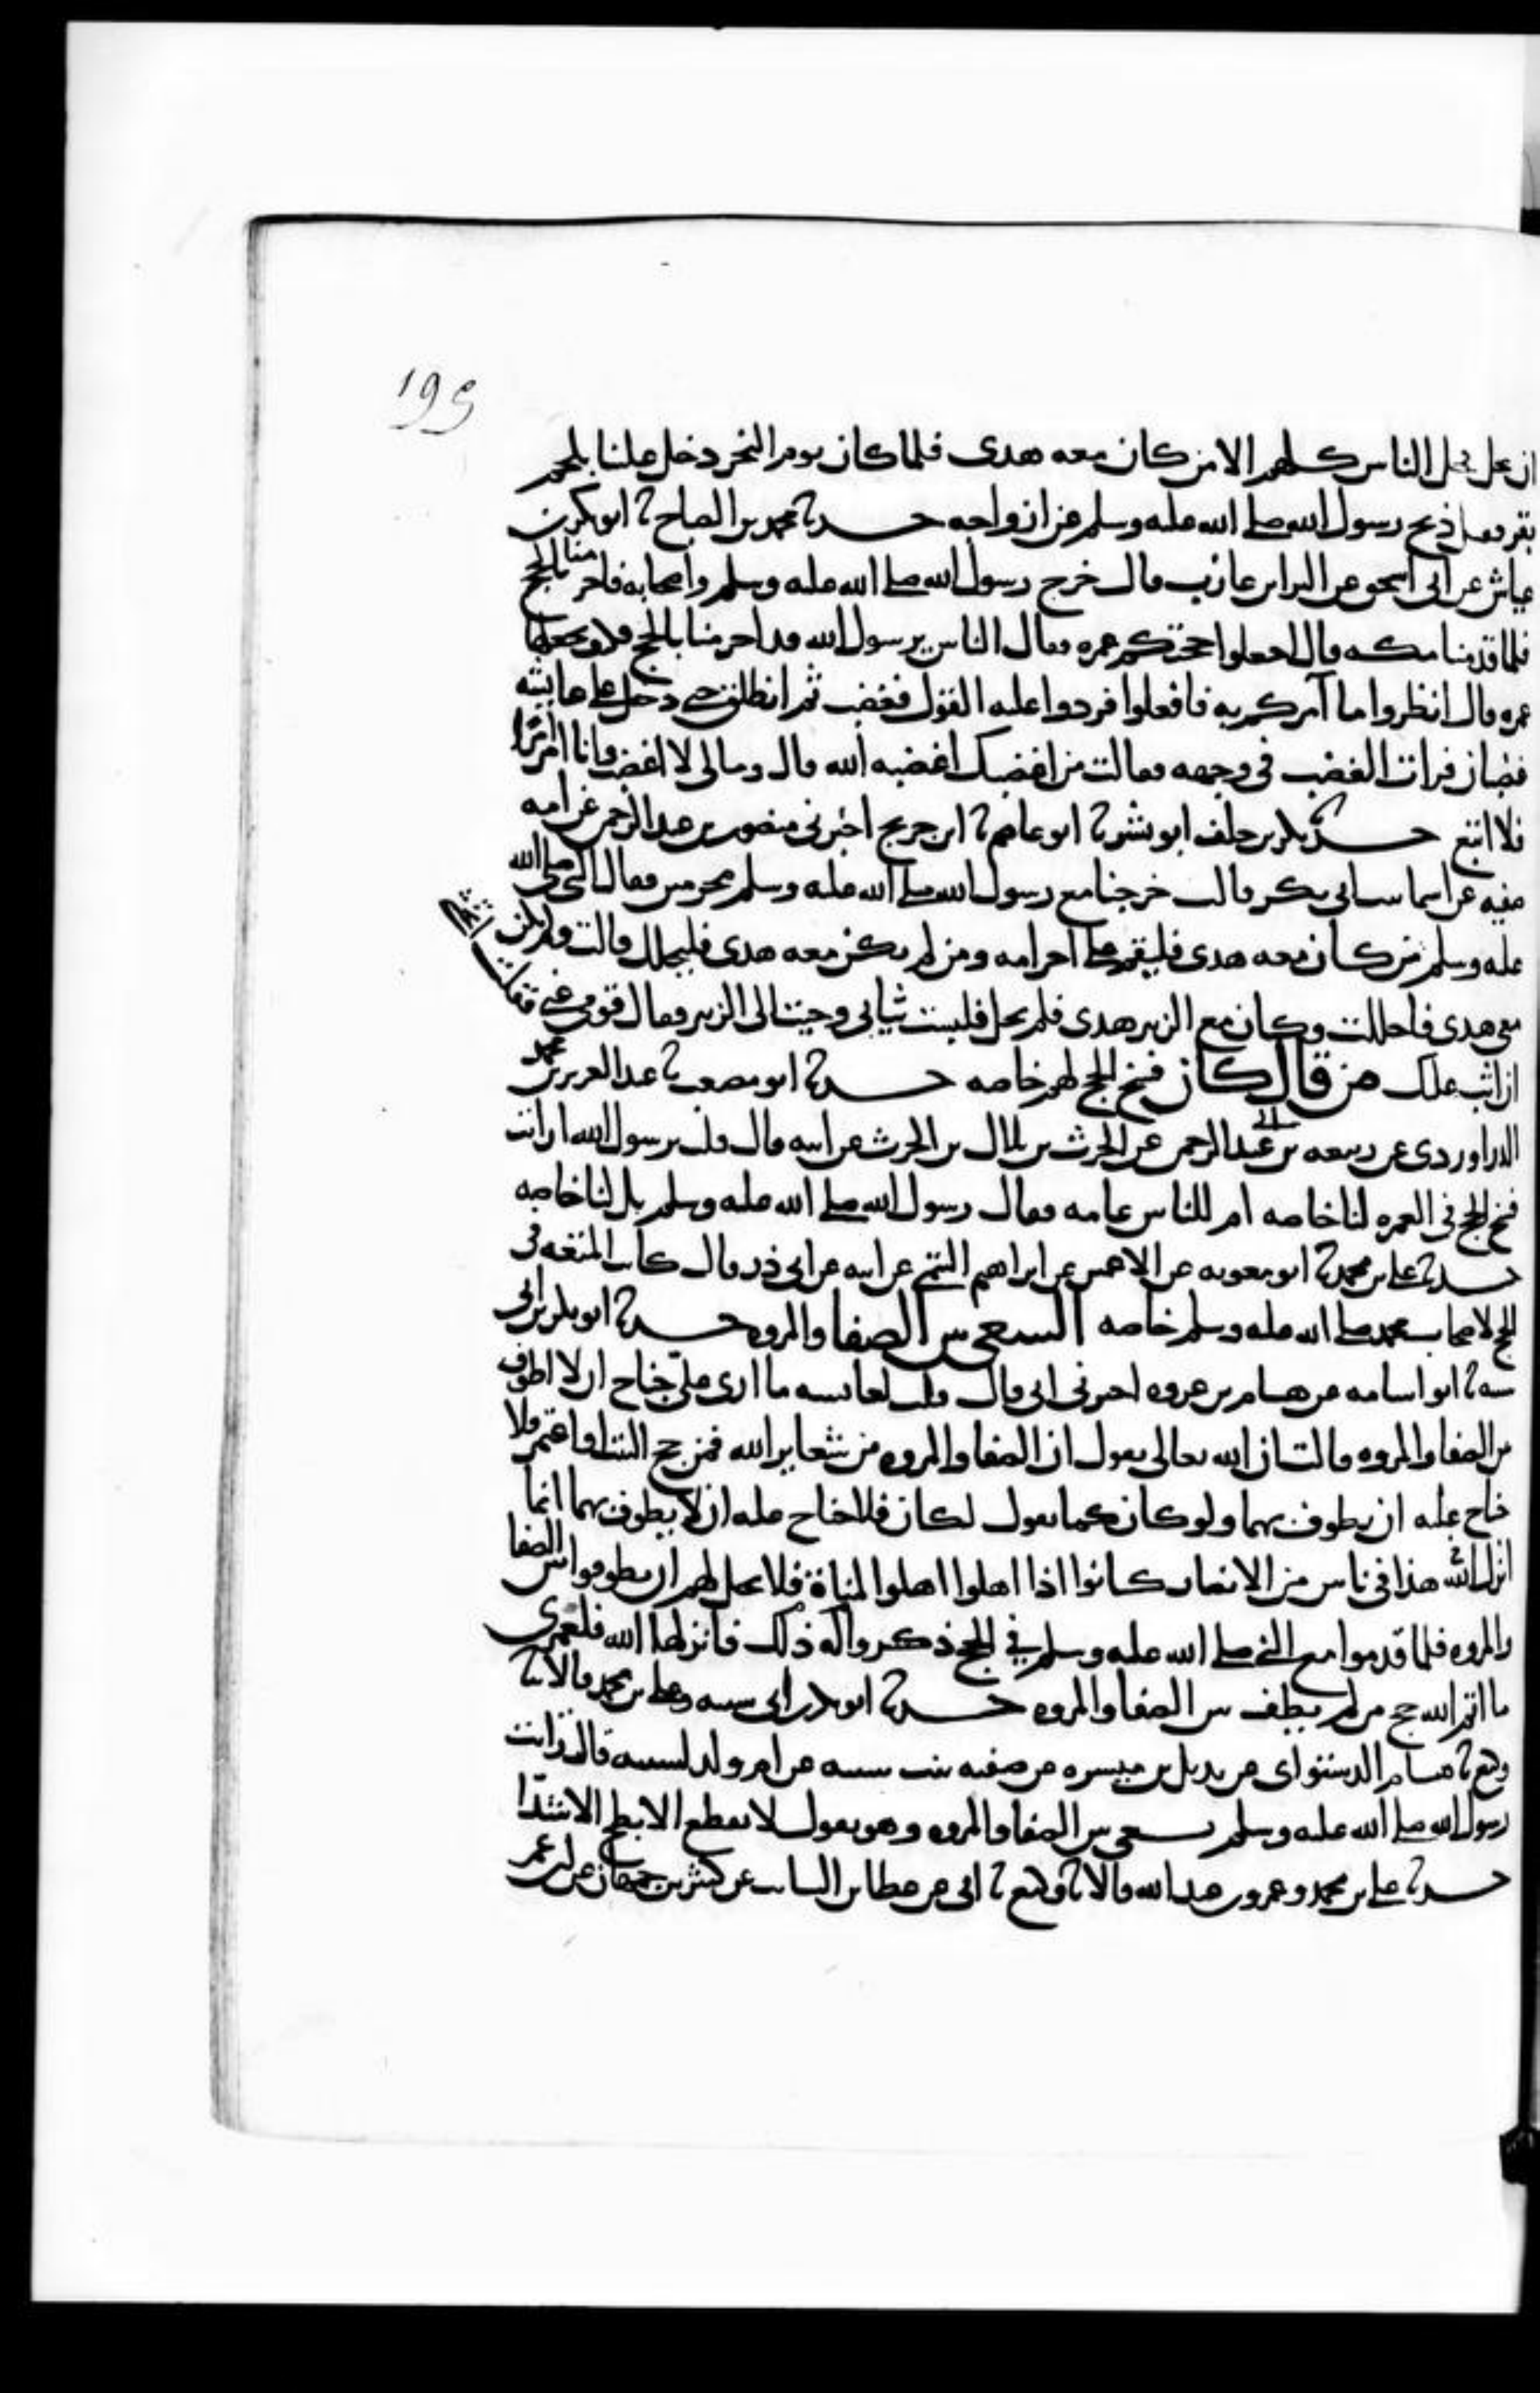 195
ان يحل فحل الناس كلهم الا من كان معه هدى فلما كان يوم النحر دخل علينا بلحم
بقر فقيل ذبح رسول الله صلى الله عليه وسلم عن ازواجه حدثنا محمد بن الصباح ثنا ابو بكر بن
عياش عن ابى اسحق عن البرا بن عازب قال خرج رسول الله صلى الله عليه وسلم واصحابه فاحرمنا بالحج
فلما قدمنا مكه قال اجعلوا حجتكم عمره فقال الناس يرسول الله قد احرمنا بالحج فكيف نجعلها
عمره قال انظروا ما آمركم به فافعلوا فردوا عليه القول فغضب ثم انطلق حتى دخل على عايشه
غضبان فرات الغضب فى وجهه فقالت من اغضبك اغضبه الله قال ومالى لا اغضب وانا امر امرا
فلا اتبع حدثنا بكر بن خلف ابو بشر ثنا ابو عاصم ثنا ابن جريج اخبرنى منصور بن عبد الرحمن عن امه
صفيه عن اسما بنت ابى بكر قالت خرجنا مع رسول الله صلى الله عليه وسلم محرمين فقال النبى صلى الله
عليه وسلم من كان معه هدى فليقم على احرامه ومن لم يكن معه هدى فليحلل قالت ولم يكن
معى هدى فاحللت وكان مع الزبير هدى فلم يحل فلبست ثيابى وجيت الى الزبير فقال قومى عنى فقلت اتخشى
ان اثب عليك من قال كان فسخ الحج لهم خاصه حدثنا ابو مصعب ثنا عبد العزيز بن محمد
الدراوردى عن ربيعه بن ابى عبد الرحمن عن الحرث بن بلال بن الحرث عن ابيه قال قلت يرسول الله ارايت
فسخ الحج فى العمره لنا خاصه ام للناس عامه فقال رسول الله صلى الله عليه وسلم بل لنا خاصه
حدثنا على بن محمد ثنا ابو معويه عن الاعمش عن ابراهيم التيمى عن ابيه عن ابى ذر قال كانت المتعه فى
الحج لاصحاب محمد صلى الله عليه وسلم خاصه السعى بين الصفا والمروه حدثنا ابو بكر بن ابى
شيبه ثنا ابو اسامه عن هشام بن عروه اخبرنى ابى قال قلت لعايشه ما ارى على جناح ان لا اطوف
بين الصفا والمروه قالت ان الله تعالى يقول ان الصفا والمروه من شعاير الله فمن حج البيت او اعتمر فلا
جناح عليه ان يطوف بهما ولو كان كما تقول لكان فلا جناح عليه ان لا يطوف بهما انما
انزل الله هذا فى ناس من الانصار كانوا اذا اهلوا اهلوا لمناة فلا يحل لهم ان يطوفوا بين الصفا
والمروه فلما قدموا مع النبى صلى الله عليه وسلم فى الحج ذكروا له ذلك فانزلها الله فلعمرى
ما اتم الله حج من لم يطف بين الصفا والمروه حدثنا ابو بكر بن ابى شيبه وعلى بن محمد قالا ثنا
وكيع ثنا هشام الدستواى عن بديل بن ميسره عن صفيه بنت شيبه عن ام ولد لشيبه قالت رايت
رسول الله صلى الله عليه وسلم يسعى بين الصفا والمروه وهو يقول لا يقطع الابطح الا شدا
حدثنا على بن محمد وعمرو بن عبد الله قالا ثنا وكيع ثنا ابى عن عطا بن السايب عن كثير بن جمهان عن ابن عمر